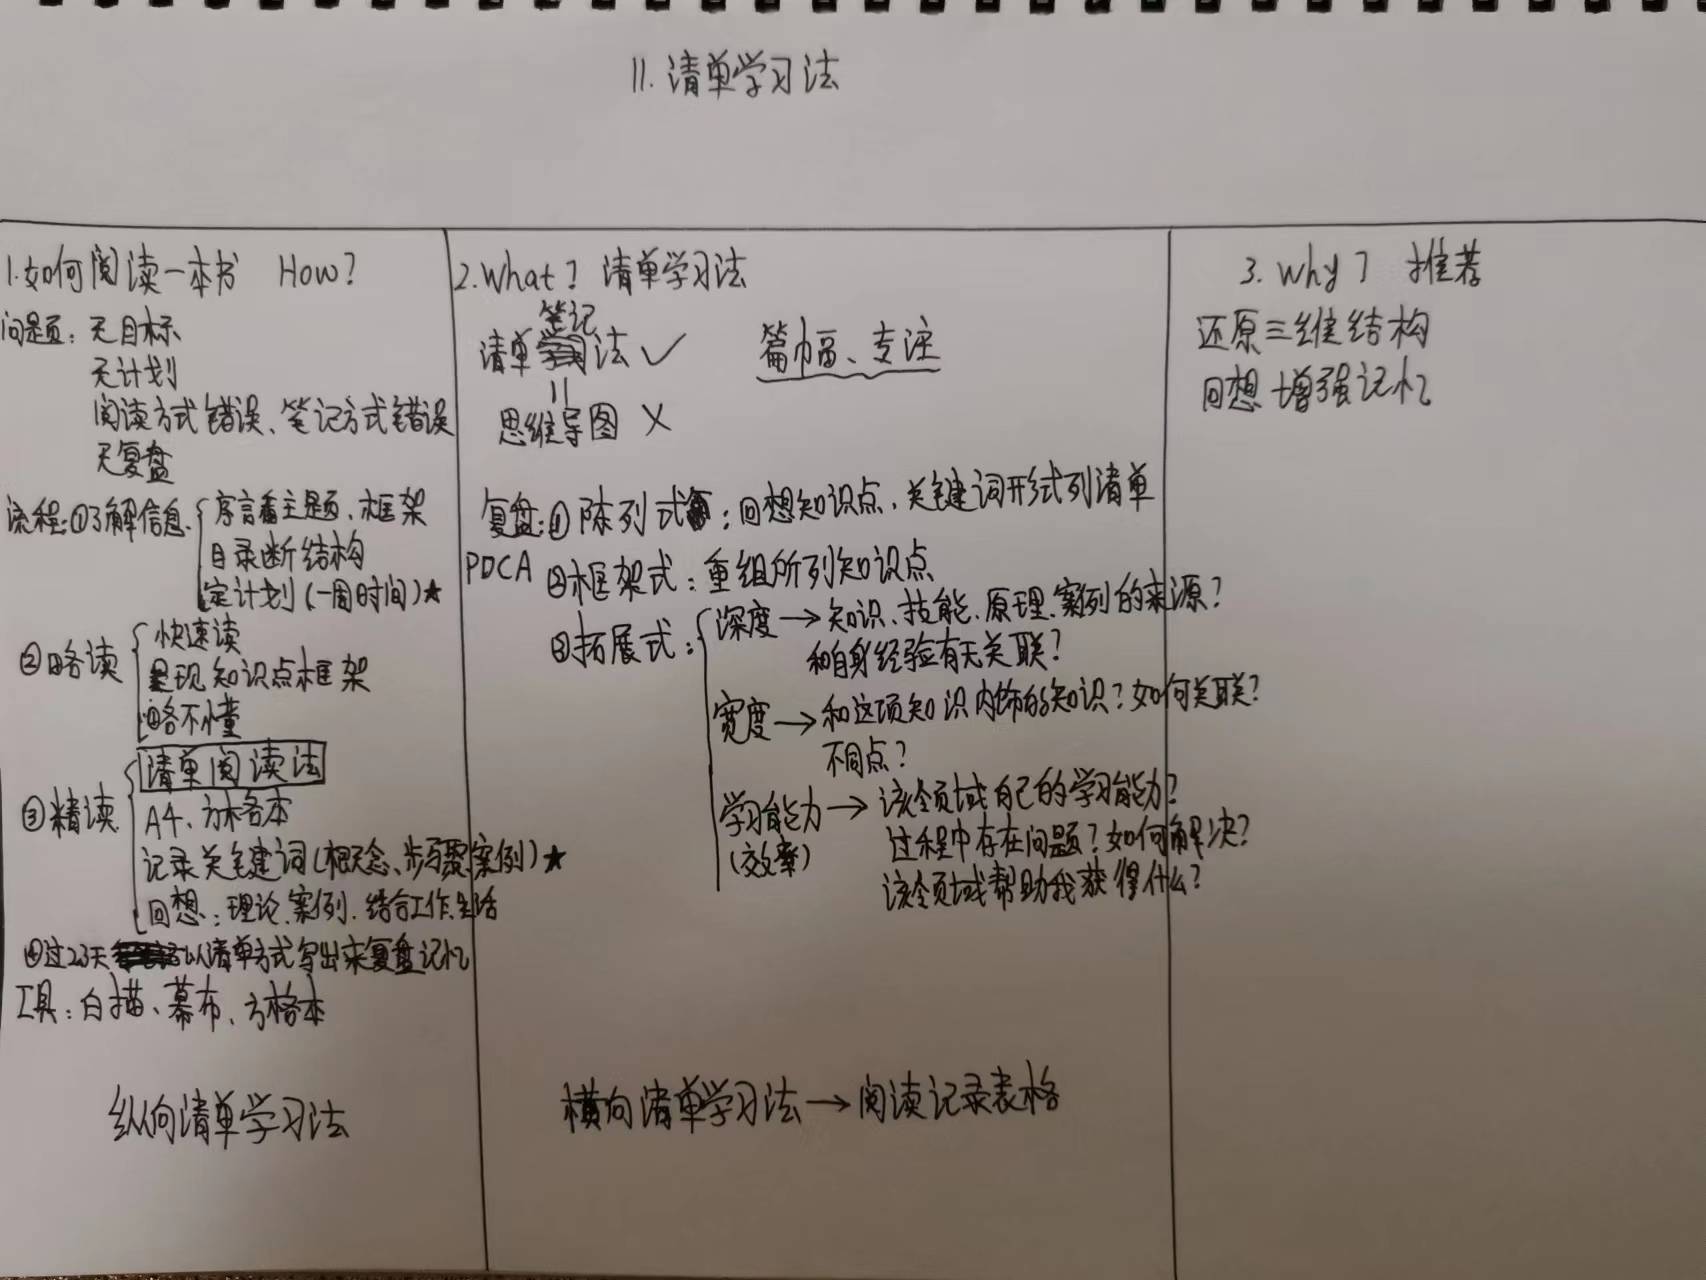 11.清单学习法
1.如何阅读一本书 How?
问题:无目标
无计划
阅读方式错误、笔记方式错误
无复盘
流程:①了解信息
序言看主题、框架
目录断结构
定计划(一周时间)★
②略读
快速读
呈现知识点框架
略不懂
③精读
清单阅读法
A4、方格本
记录关键词(概念、步骤、案例)★
回想:理论、案例、结合工作、生活
④过2、3天 以清单方式写出来复盘记忆
工具:白描、幕布、方格本
纵向清单学习法
2.What? 清单学习法
笔记
清单 法 ✓ 篇幅、专注
||
思维导图 ×
复盘:①陈列式:回想知识点、关键词形式列清单
PDCA ②框架式:重组所列知识点
③拓展式:
深度→知识、技能、原理、案列的来源?
和自身经验有无关联?
宽度→和这项知识 的知识?如何关联?
不同点?
学习能力→该领域自己的学习能力?
(效率) 过程中存在问题?如何解决?
该领域帮助我获得什么?
横向清单学习法→阅读记录表格
3. Why? 推荐
还原三维结构
回想增强记忆